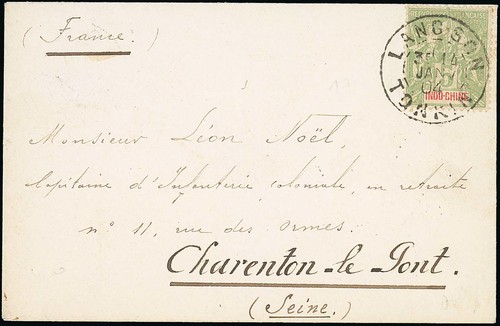 (France.)
LANG-SON
3E 14
JANV
04
TONKIN
INDO-CHINE
Monsieur Léon Noël,
Capitaine d'Infanterie coloniale, en retraite
n° 11, rue des Ormes.
Charenton-le-Pont.
(Seine.)